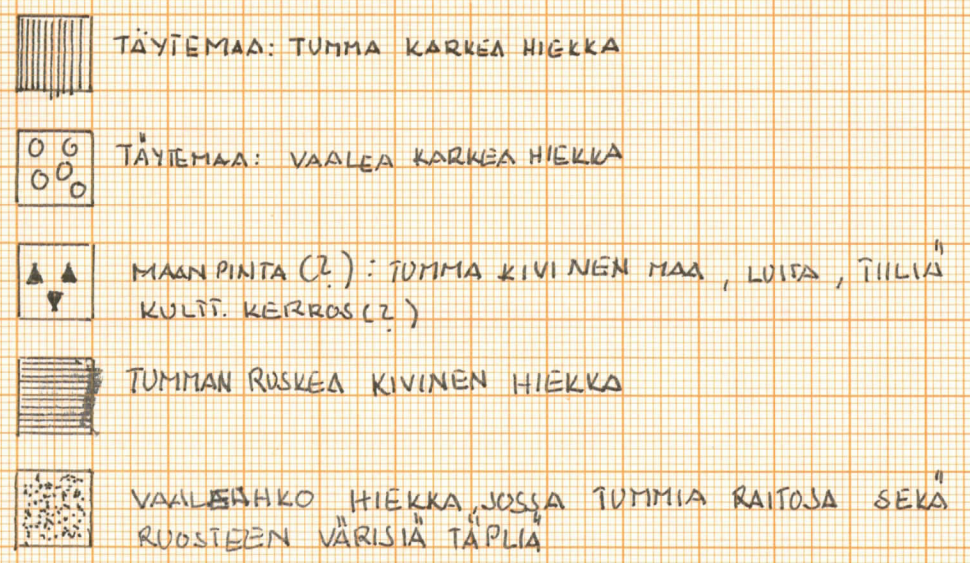 TÄYTEMAA: TUMMA KARKEA HIEKKA
TÄYTEMAA: VAALEA KARKEA HIEKKA
MAAN PINTA (?): TUMMA KIVINEN MAA, LUITA, TIILIÄ
KULTT. KERROS (?)
TUMMAN RUSKEA KIVINEN HIEKKA
VAALEAHKO HIEKKA, JOSSA TUMMIA RAITOJA SEKÄ
RUOSTEEN VÄRISIÄ TÄPLIÄ